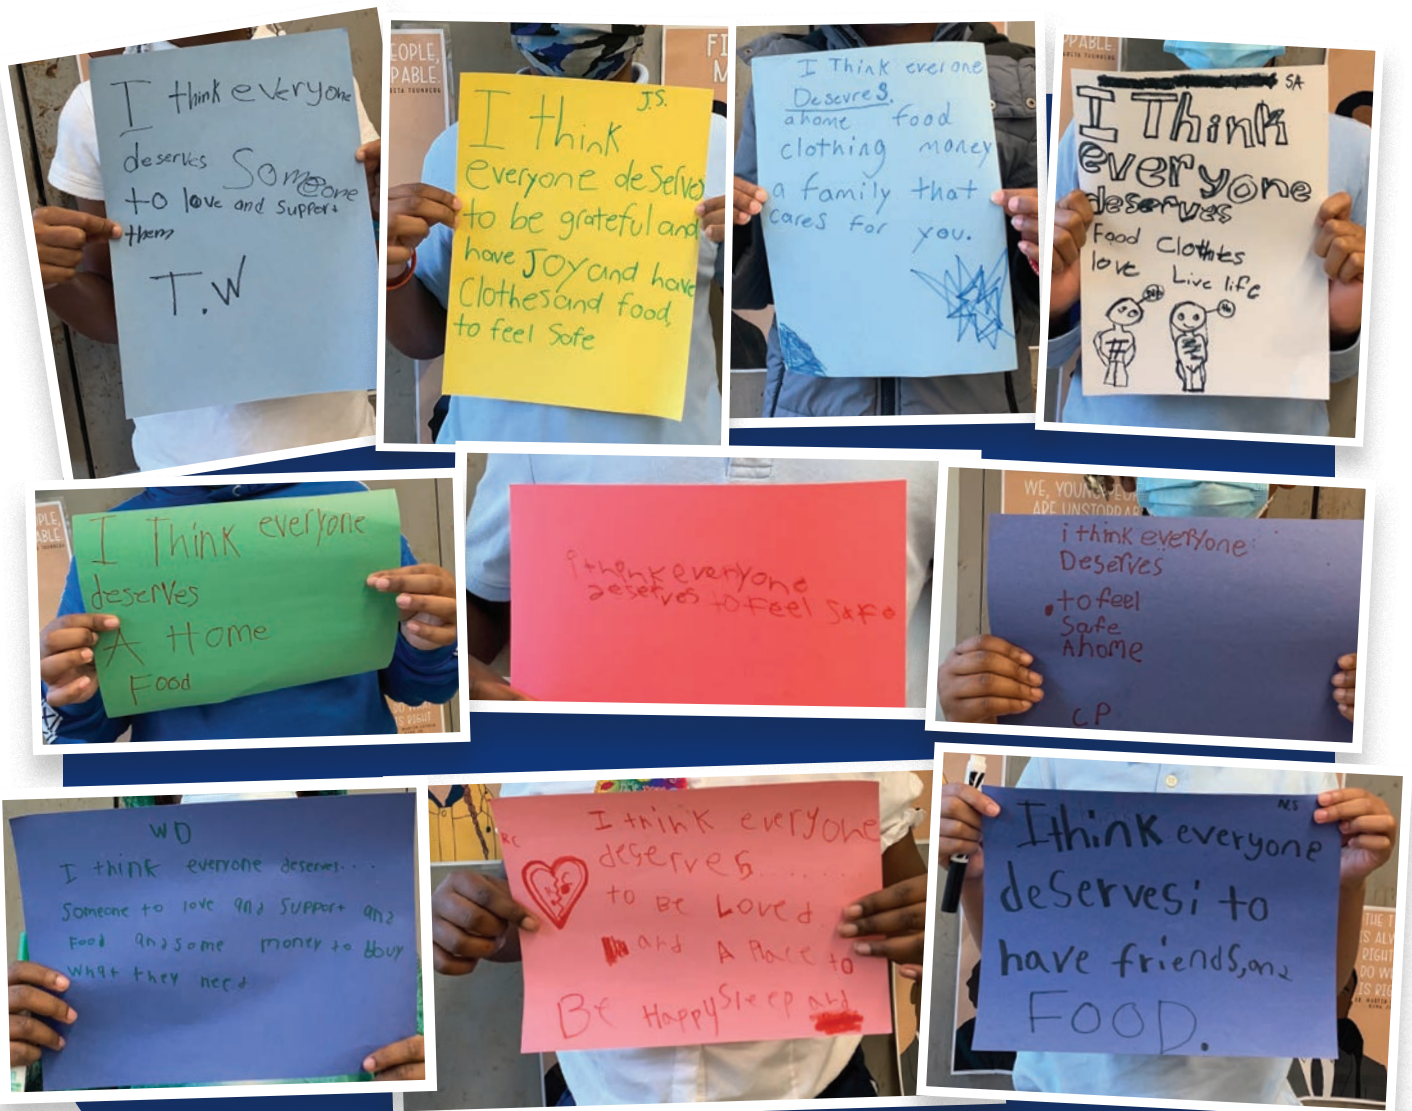 I think everyone
deserves Someone
to love and support
them
T.W
EOPLE,
PABLE.
J.S.
I think
everyone deserves
to be grateful and
have JOY and have
Clothes and food,
to feel Safe
FI
M
I Think everone
Desevres.
ahome food
clothing money
a family that
cares for you.
PPABLE.
SA
I Think
everyone
deserves
Food Clothtes
love Live life
PLE,
ABLE.
I Think everyone
deserves
A Home
Food
IS RIGHT
i think everyone
deserves to Feel Safe
WE, YOUNG PEOP
ARE UNSTOPPAB
i think everyone
Deserves
.to feel
Safe
Ahome
CP
WD
I think everyone deserves....
Someone to love and support and
Food and some money to bbuy
what they need
RC
I think everyone
deserves.......
to Be Loved.
and A Place to
Be Happy Sleep and
N.S
I think everyone
deserves; to
have friends, and
FOOD.
THE T
IS ALW
RIGHT
DO WH
IS RIG